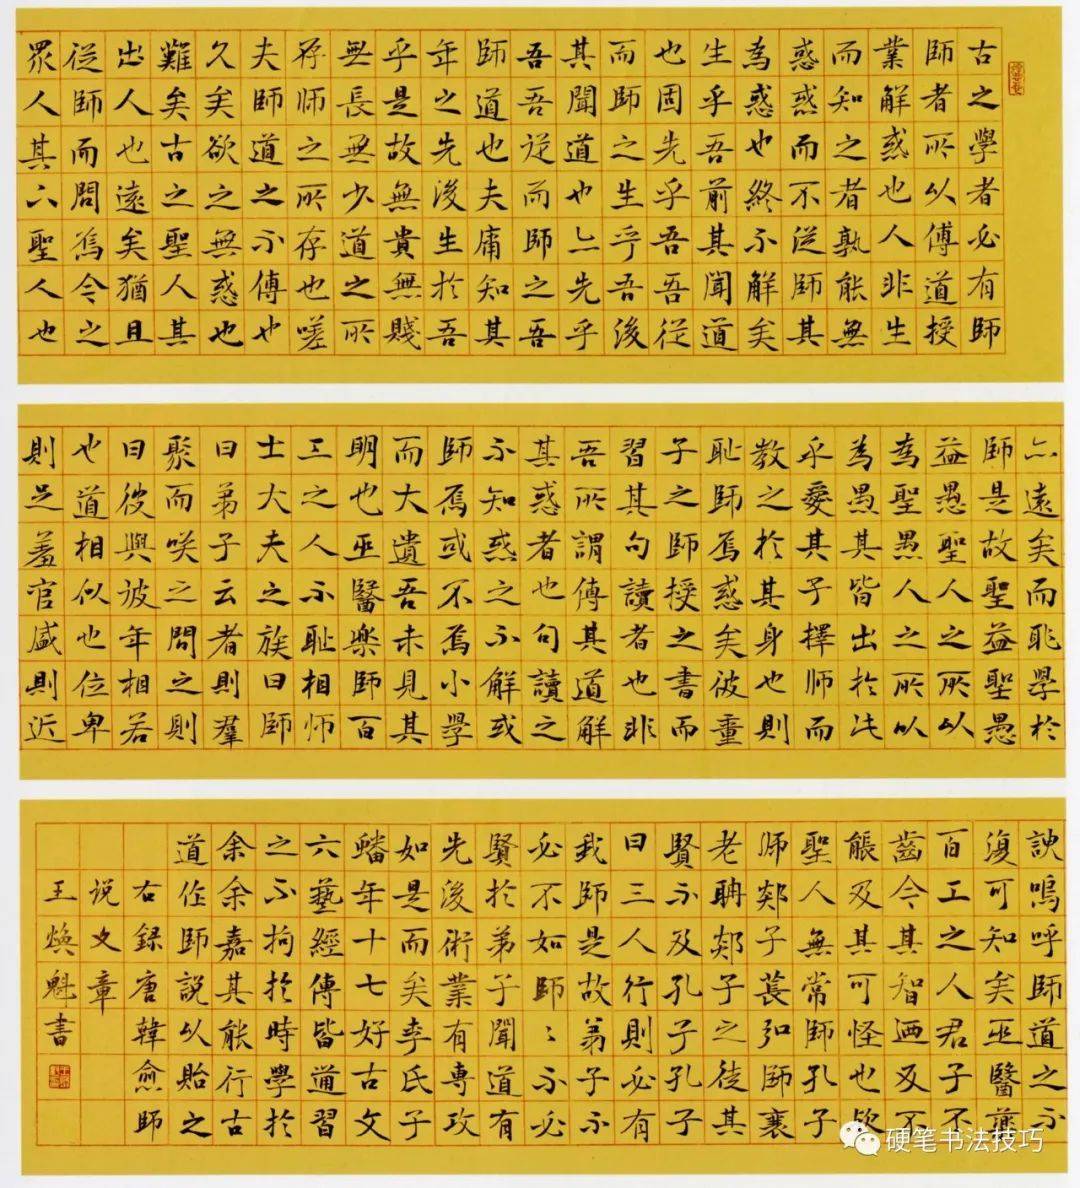 古之學者必有師
師者所以傳道授
業解惑也人非生
而知之者孰能無
惑惑而不從師其
為惑也終不解矣
生乎吾前其聞道
也固先乎吾吾從
而師之生乎吾後
其聞道也亦先乎
吾吾從而師之吾
師道也夫庸知其
年之先後生於吾
乎是故無貴無賤
無長無少道之所
存师之所存也嗟
夫師道之不傳也
久矣欲之無惑也
難矣古之聖人其
出人也遠矣猶且
從師而問焉今之
眾人其下聖人也
亦遠矣而恥學於
師是故聖益聖愚
益愚聖人之所以
為聖愚人之所以
為愚其皆出於此
乎愛其子擇师而
教之於其身也則
恥師焉惑矣彼童
子之師授之書而
習其句讀者也非
吾所謂傳其道解
其惑者也句讀之
不知惑之不解或
師焉或不焉小學
而大遺吾未見其
明也巫醫樂師百
工之人不恥相师
士大夫之族曰師
曰弟子云者則羣
聚而笑之問之則
曰彼與彼年相若
也道相似也位卑
則足羞官盛則近
諛嗚呼師道之不
復可知矣巫醫藥
百工之人君子不
齒今其智迺反不
能及其可怪也歟
聖人無常師孔子
师郯子萇弘師襄
老聃郯子之徒其
賢不及孔子孔子
曰三人行則必有
我師是故弟子不
必不如師〻不必
賢於弟子聞道有
先後術業有專攻
如是而矣李氏子
蟠年十七好古文
六藝經傳皆通習
之不拘於時學於
余余嘉其能行古
道作師說以貽之
右錄唐韓愈師
说文章
王煥魁書
硬笔书法技巧